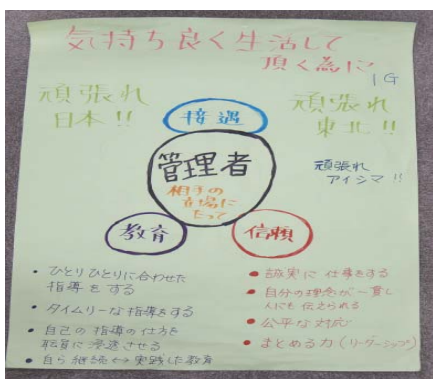 気持ち良く生活して
頂く為に
1G
頑張れ
日本!!
接遇
頑張れ
東北!!
管理者
相手の
立場に
たって
頑張れ
アイシマ!!
教育
信頼
• ひとりひとりに合わせた
指導をする
• タイムリーな指導をする
• 自己の指導の仕方を
職員に浸透させる
• 自ら継続↔実践した教育
• 誠実に仕事をする
• 自分の理念が一貫し
人にも伝えられる
• 公平な対応
• まとめる力(リーダーシップ)